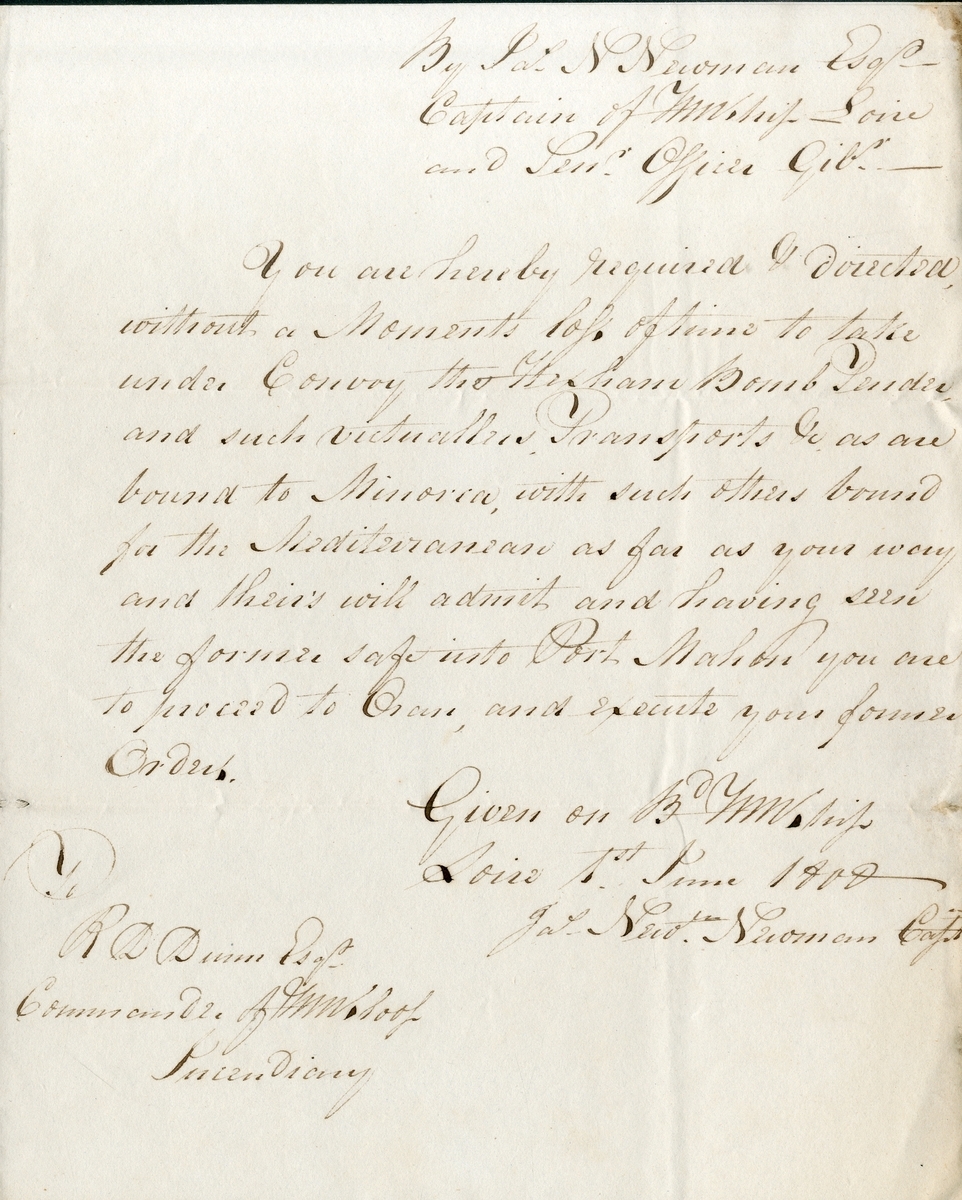 By Jas. N Newman Esqr.
Captain of HM Ship Loire
and Senr. Officer Gibr.
You are hereby required & directed,
without a Moments loss of time to take
under Convoy the Hexham Bomb Tender,
and such victuallers, Transports &c, as are
bound to Minorca, with such others bound
for the Mediterranean as far as your way
and theirs will admit and having seen
the former safe into Port Mahon you are
to proceed to Oran, and execute your former
Orders.
Given on Bd HM Ship
Loire 1st. June 1808
Jas. Newtn. Newman Captn
To
R D Dunn Esqr.
Commander of HM Sloop
Incendiary